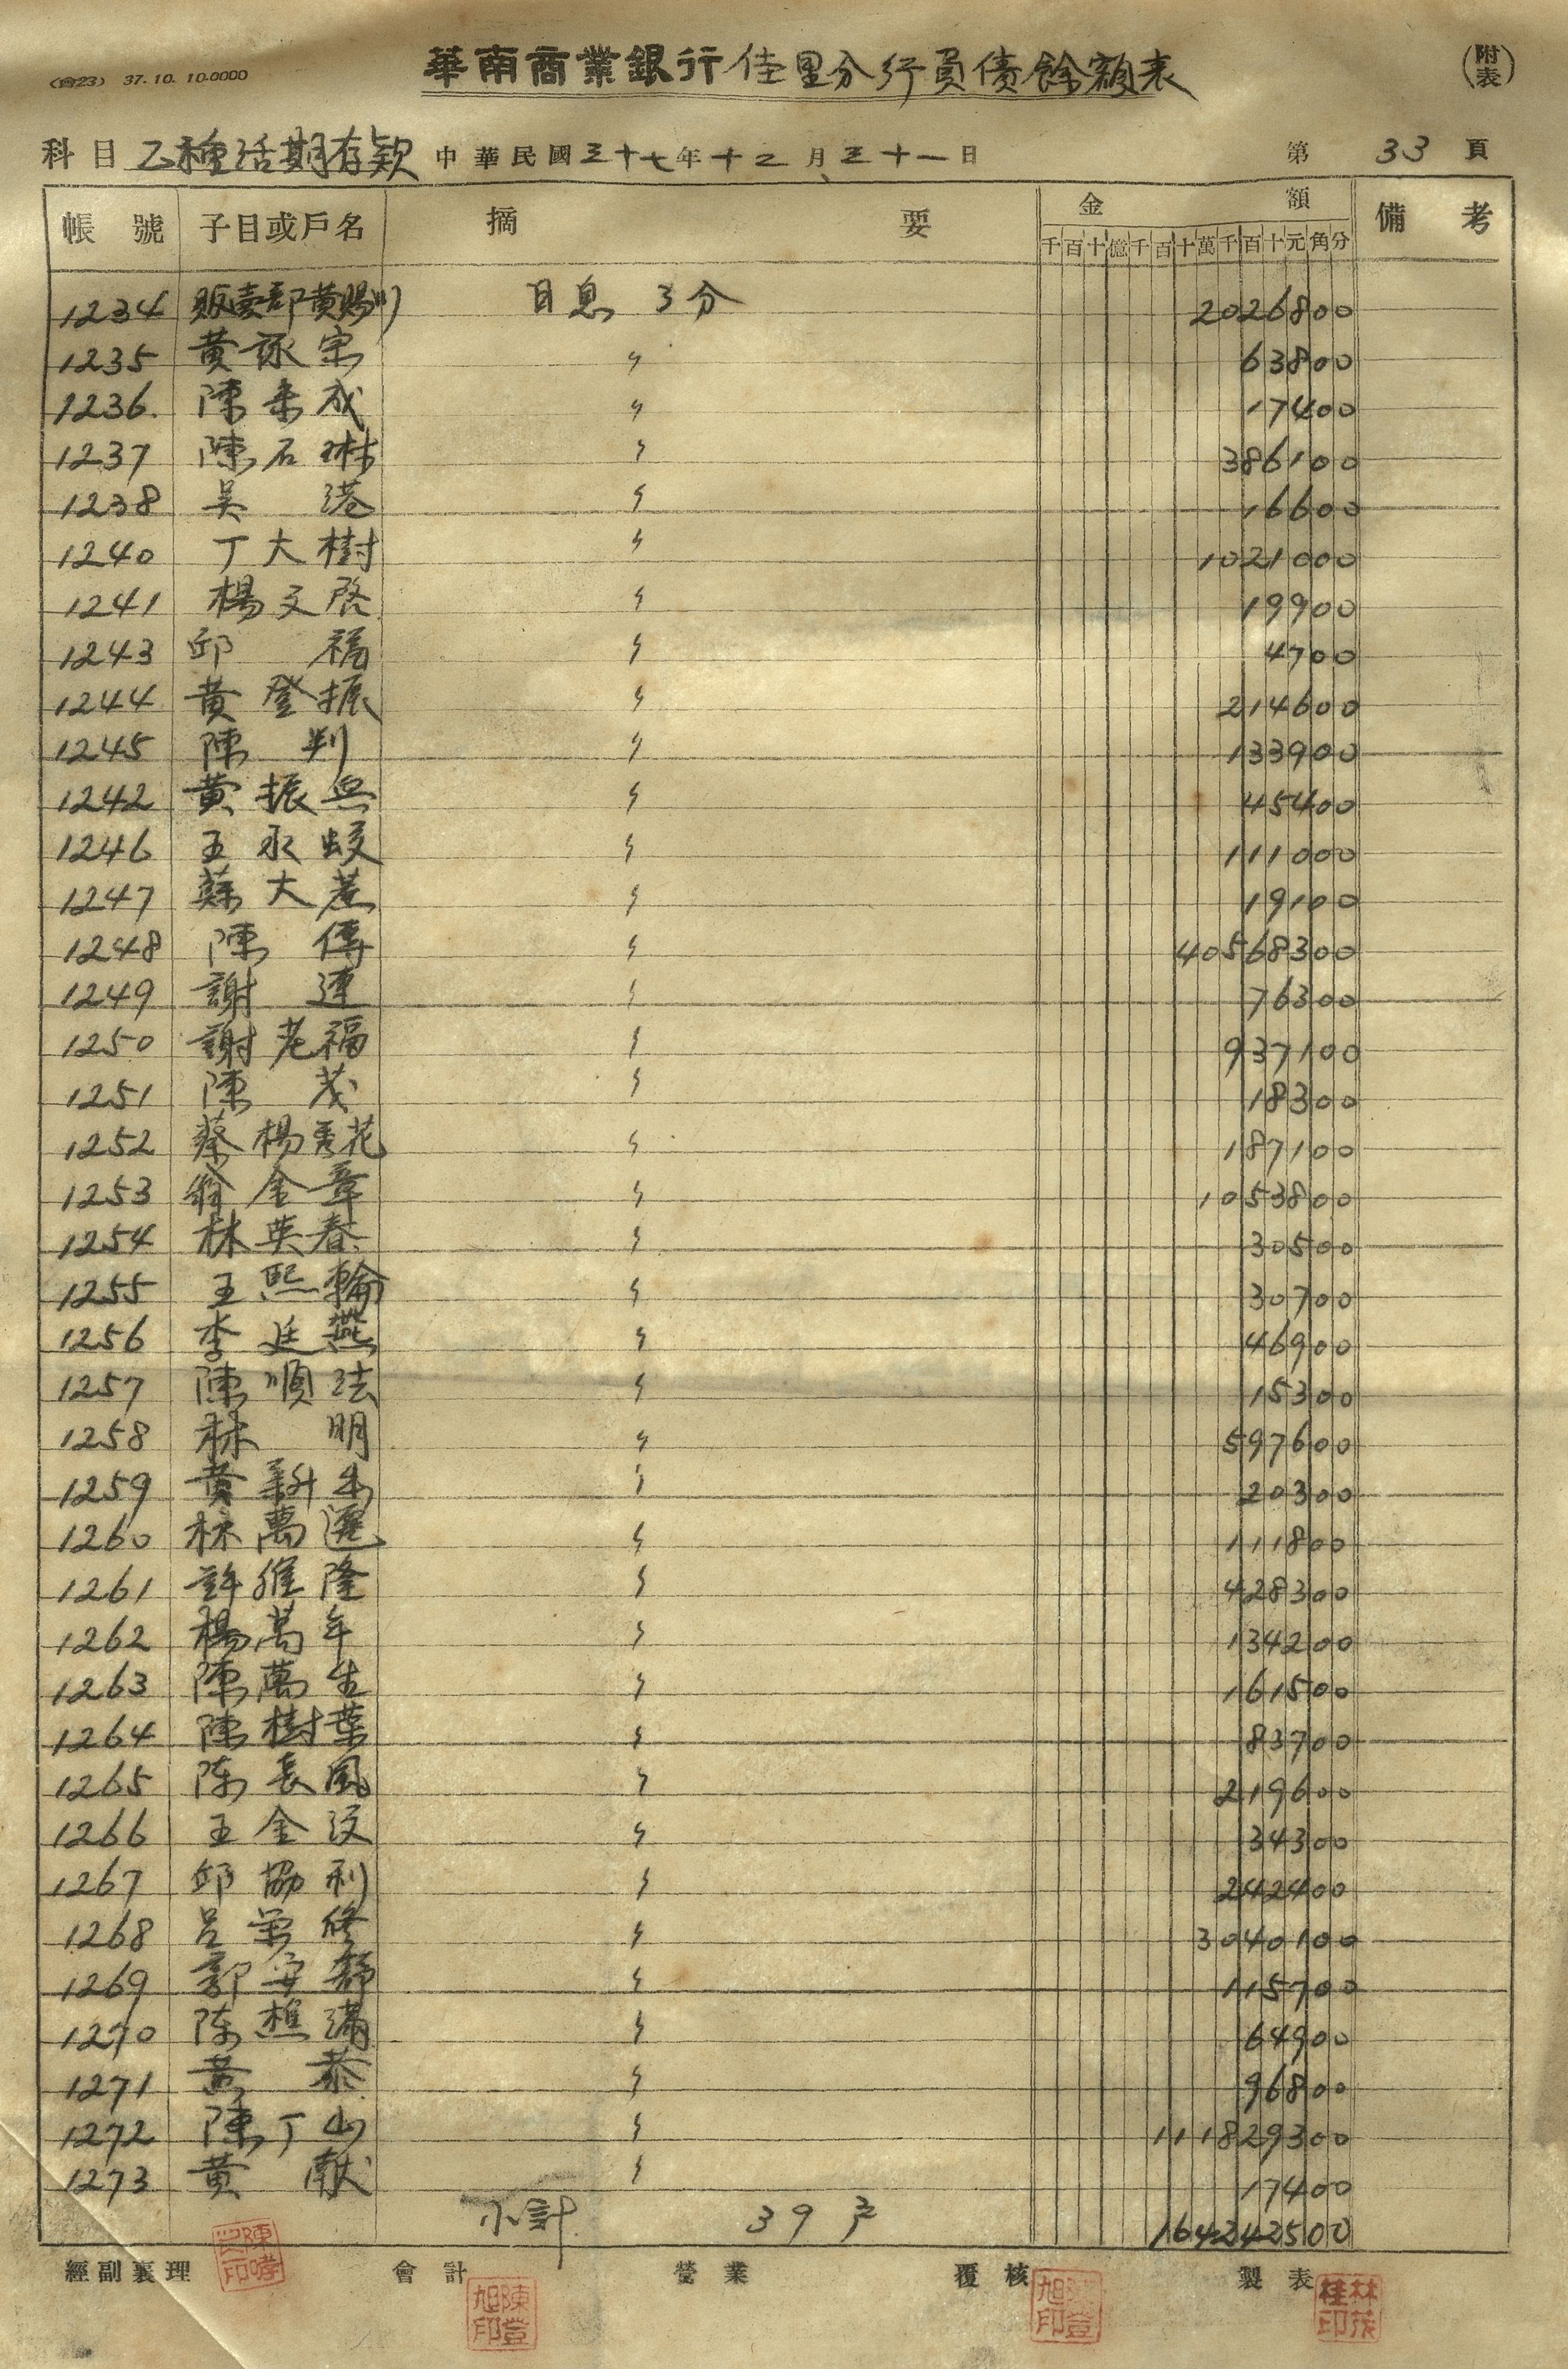 (會23) 37.10.10.0000
華南商業銀行佳里分行員債餘額表
(附表)
科目 乙種活期存款 中華民國三十七年十二月三十一日 第 33 頁
帳號 子目或戶名 摘要 金額 備考
千百十億千百十萬千百十元角分
1234 販賣部黃賜川 日息 3分 2026800
1235 黃詠宗 〃 63800
1236 陳來成 〃 17400
1237 陳石琳 〃 386100
1238 吳港 〃 16600
1240 丁大樹 〃 1021000
1241 楊文啓 〃 19900
1243 邱福 〃 4700
1244 黃登振 〃 214600
1245 陳判 〃 133900
1242 黃振興 〃 45400
1246 王永蛟 〃 111000
1247 蘇大 〃 19100
1248 陳傳 〃 40568300
1249 謝連 〃 76300
1250 謝老福 〃 937100
1251 陳茂 〃 18300
1252 蔡楊秀花 〃 187100
1253 翁金章 〃 1053800
1254 林英春 〃 30500
1255 王熙輪 〃 30700
1256 李廷燕 〃 46900
1257 陳順法 〃 15300
1258 林明 〃 597600
1259 黃 〃 20300
1260 林萬選 〃 111800
1261 許維隆 〃 428300
1262 楊萬年 〃 134200
1263 陳萬生 〃 161500
1264 陳樹葉 〃 83700
1265 陳長風 〃 219600
1266 王金 〃 34300
1267 邱協利 〃 242400
1268 呂榮修 〃 3040100
1269 郭安靜 〃 115700
1270 陳樵滿 〃 64900
1271 黃恭 〃 96800
1272 陳丁山 〃 111829300
1273 黃献 〃 17400
小計 39戶 164242500
經副襄理 會計 營業 覆核 製表
陳登旭印
林茂桂印